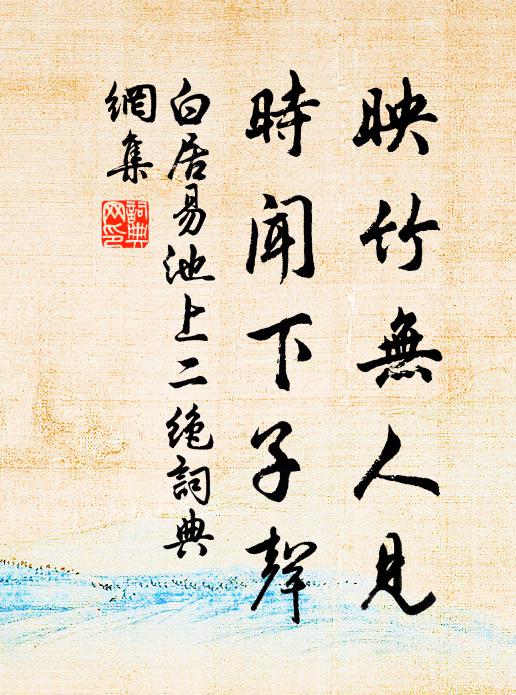 映竹無人見
時聞下子聲
白居易池上二絶詞典
網集
詞典
网印